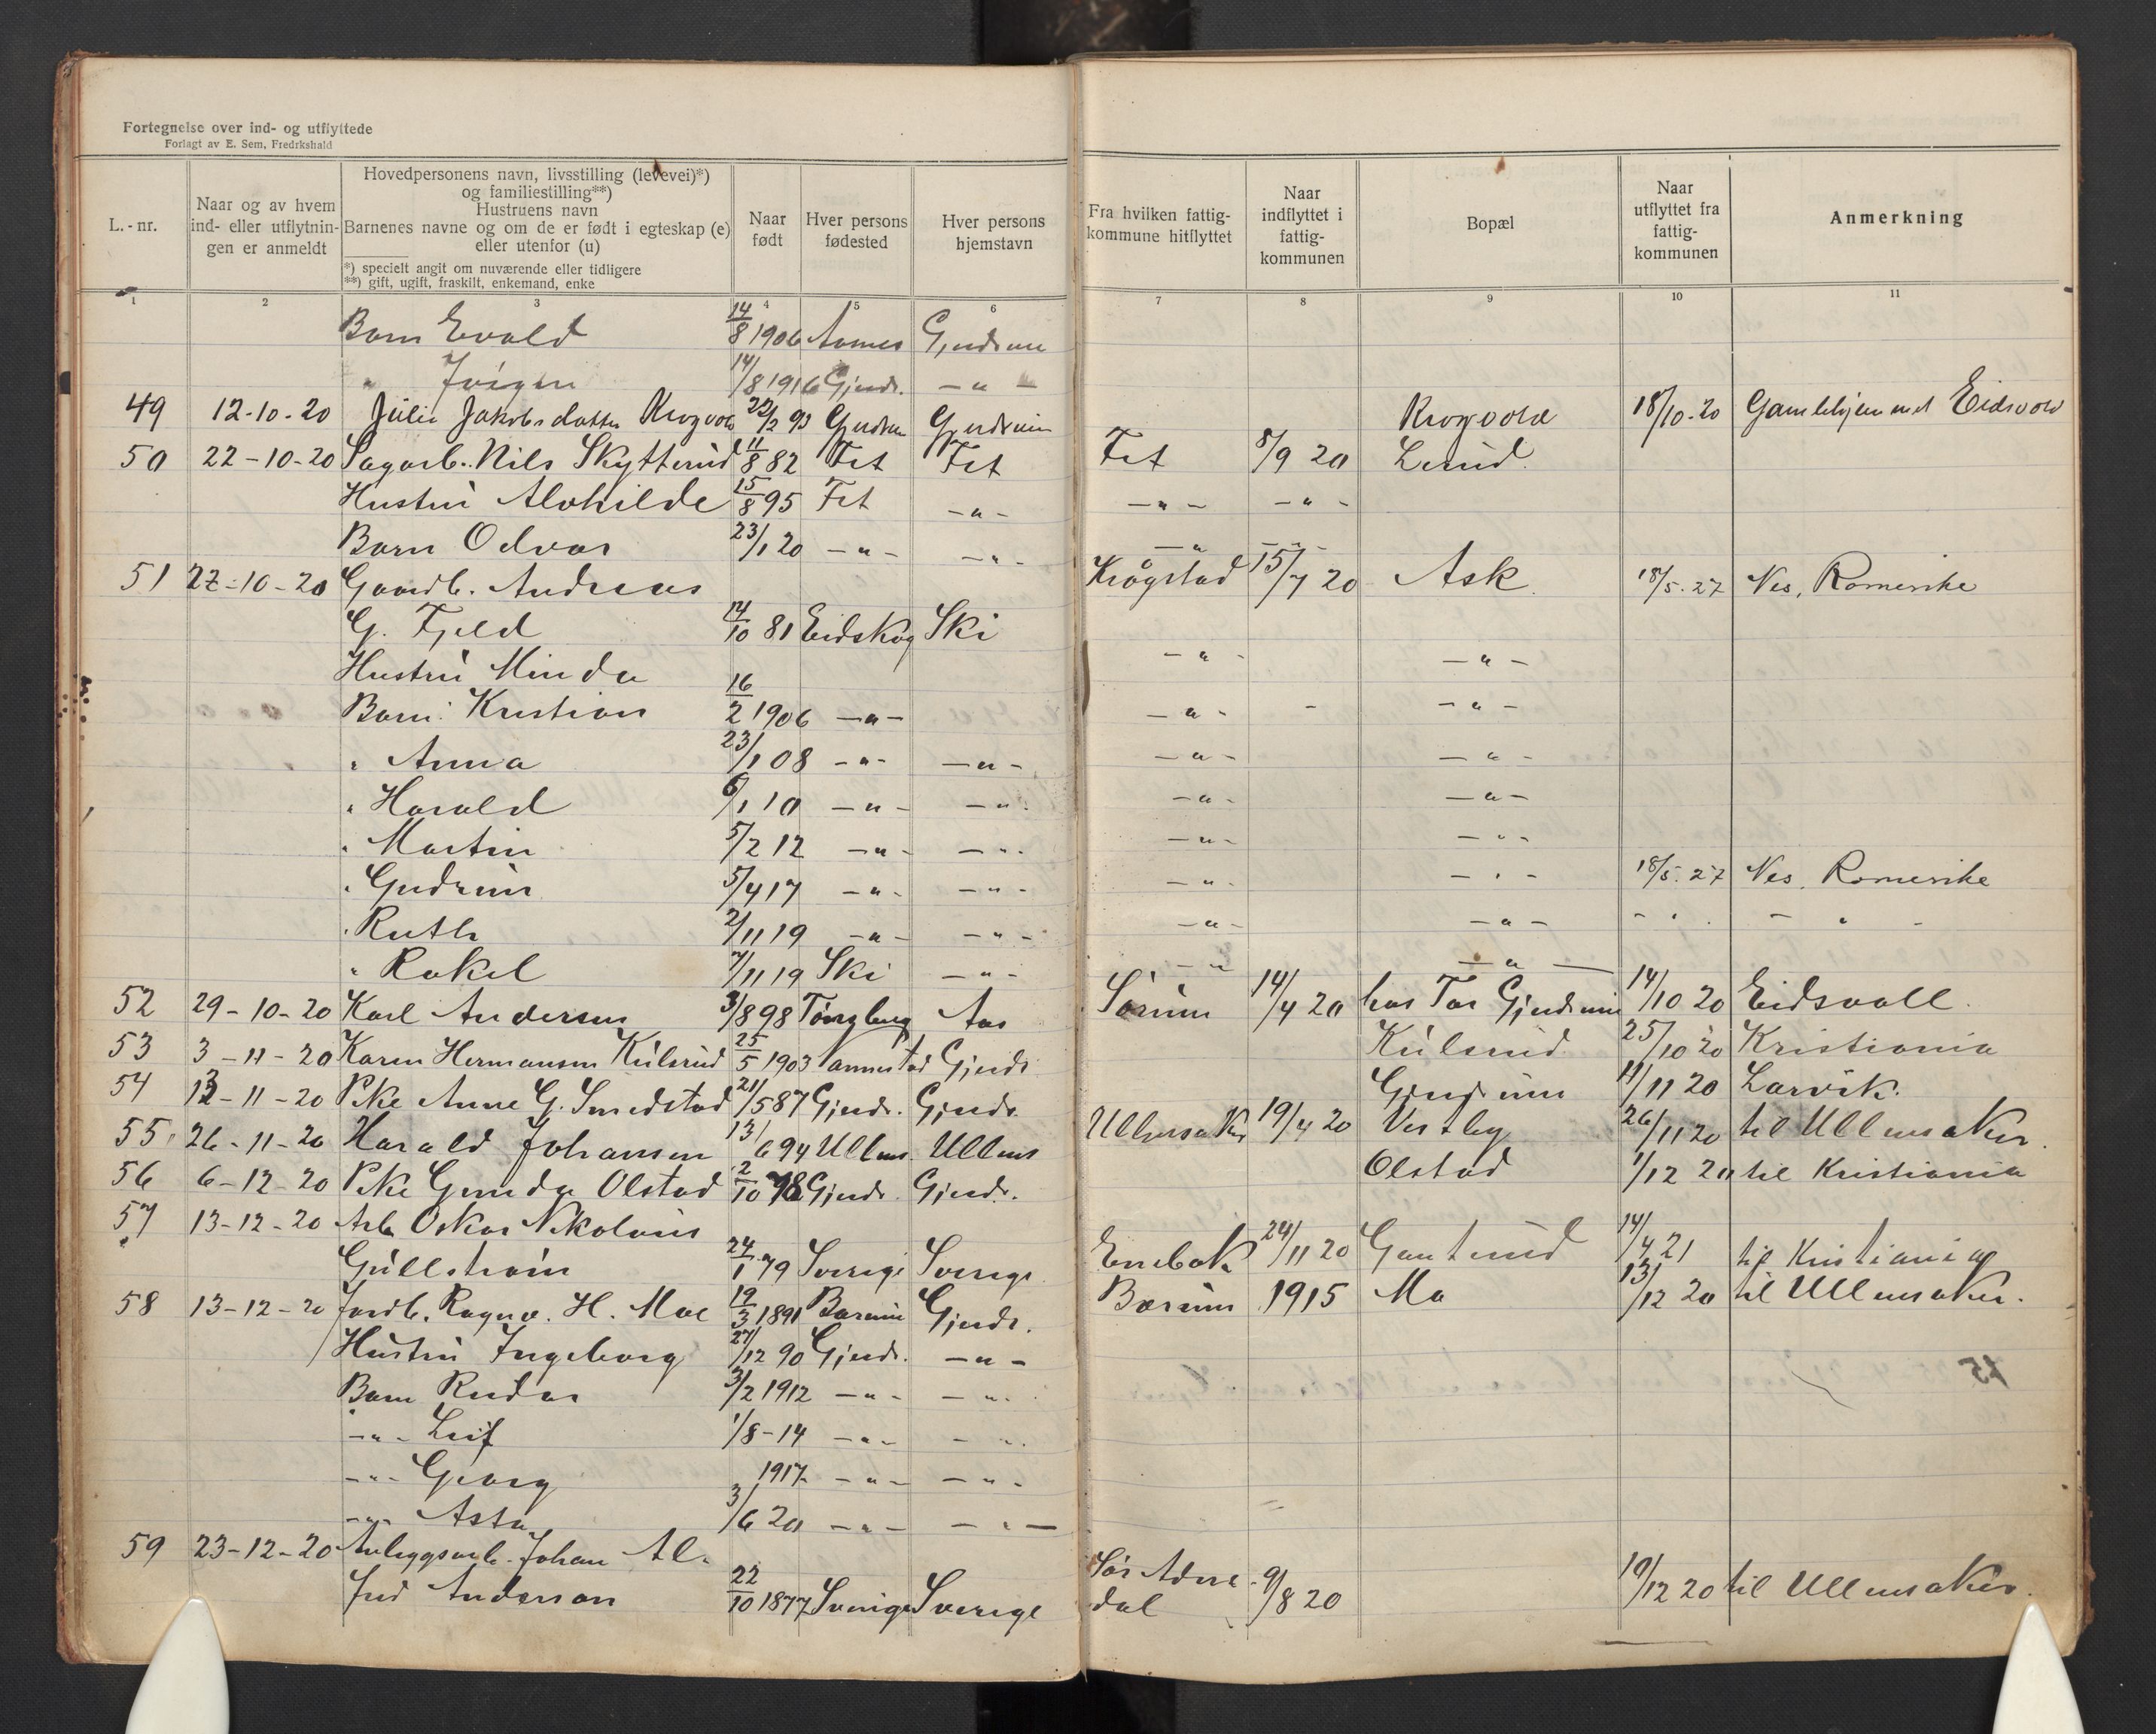 Fortegnelse over ind- og utflyttede
Forlagt av E. Sem, Fredrkshald
L.-nr.
Naar og av hvem ind- eller utflytnin-gen er anmeldt
Hovedpersonens navn, livsstilling (levevei)*) og familiestilling**)
Hustruens navn
Barnenes navne og om de er født i egteskap (e) eller utenfor (u)
*) specielt angit om nuværende eller tidligere
**) gift, ugift, fraskilt, enkemand, enke
Naar født
Hver persons fødested
Hver persons hjemstavn
Fra hvilken fattig-kommune hitflyttet
Naar indflyttet i fattig-kommunen
Bopæl
Naar utflyttet fra fattig-kommunen
Anmerkning
1 2 3 4 5 6 7 8 9 10 11
Barn Evald 14/8 1906 Aarnes Gjerdrum
" 14/8 1916 Gjerdr. -"-
49 12-10-20 Julie Jakobsdatter Krogvold 22/2 93 Gjerdrum Gjerdrum Krogvold 18/10-20 Gamlehjemmet Eidsvold
50 22-10-20 Sagarb. Nils Skytterud 11/8 82 Fet Fet Fet 8/9 20 Lerud.
Hustru Alvhilde 15/8 95 Fet -"- -"- -"-
Barn Odvar 23/1 20 -"- -"- -"- -"-
51 27-10-20 Gaardb. Andreas Kraagstad 15/7 20 Ask. 18/5-27 Nes, Romerike
G. Fjeld 14/10 81 Eidskog Ski
Hustru Minda -"- -"-
Barn: Kristian 16/2 1906 -"- -"- - -"-
" Anna 23/1 08 -"- -"- -"- -"-
" Harald 6/1 10 -"- -"- -"- -"-
" Martin 5/2 12 -"- -"- -"- -"-
" Gudrun 5/4 17 -"- -"- -"- -"- 18/5-27 Nes, Romerike
" Ruth 2/11 19 -"- -"- -"- -"- -"- -"-
" Rakel 7/11 19 Ski -"- -"- -"-
52 29-10-20 Karl Andersen 3/8 98 Tønsberg Aas Sørum 14/4 20 hos Tor Gjerdrum 14/10 20 Eidsvoll.
53 3-11-20 Karen Hermansen Kulsrud 25/5 1903 Nannestad Gjerdr. Kulsrud 25/10 20 Kristiania
54 12-11-20 Pike Anne G. Smedstad 21/5 87 Gjerdr. Gjerdr. Gjerdrum 11/11 20 Larvik.
55 26-11-20 Harald Johansen 13/6 94 Ullens. Ullens Ullensaker 19/4 20 Vestby 26/11 20 til Ullensaker.
56 6-12-20 Pike Gunda Olstad 2/10 78 Gjerdr. Gjerdr. Olstad 1/12 20 til Kristiania
57 13-12-20 Arb. Oskar Nikolaus
Gullstrøm 24/1 79 Sverige Sverige Enebak 24/11 20 14/4 21 til Kristiania
58 13-12-20 Jordb. Ragnv. H. Moe 19/3 1891 Bærum Gjerdr. Bærum 1915 Mo 13/12 20 til Ullensaker.
Hustru Ingeborg 27/12 90 Gjerdr. -"-
Barn Reidar 3/2 1912 -"- -"-
-"- Leif 1/8-14 -"- -"-
-"- Georg 1917 -"- -"-
-"- Asta 3/6 20 -"- -"-
59 23-12-20 Anleggsarb. Johan Al-
fred Anderson 22/10 1877 Sverige Sverige Sør Aurdal 9/8 20 19/12 20 til Ullensaker.